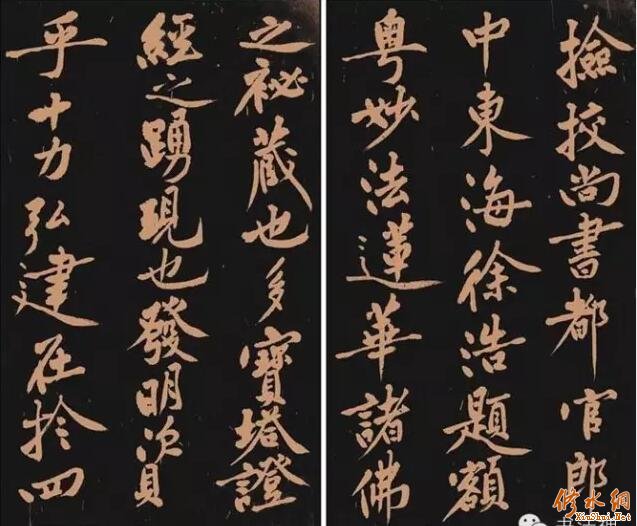 撿挍尚書都官郎
中東海徐浩題額
粤妙法蓮華諸佛
之祕蔵也多寶塔證
經之踴現也發明資
乎十力弘建在於四
修水網
XiuShui.Net